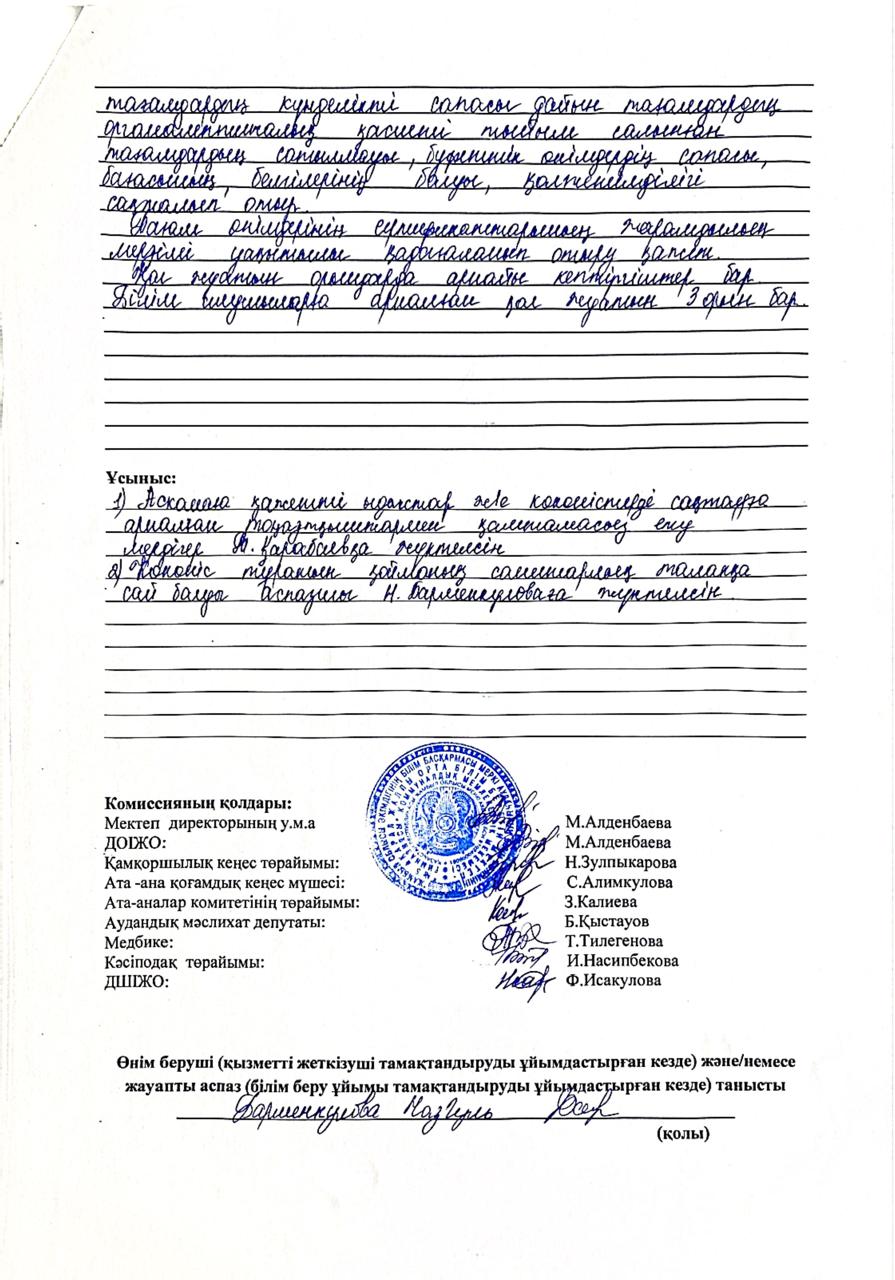 тағамдардың күнделікті сапасы дайын тағамдардың
органолептикалық қасиеті тыйым салынған
тағамдардың сатылмауы, буфеттік өнімдердің сапасы,
бағасының, белгілерінің болуы, қолжетімділігі
сақталып отыр.
Дайын өнімдерінің сертификаттарының жарамдылық
мерзімі уақытылы қадағаланып отыру қажет.
Қол жуатын орындарда арнайы кептіргіштер бар.
Білім алушыларға арналған қол жуатын 3 орын бар.
Ұсыныс:
1) Асханаға қажетті ыдыстар және көкөністерді сақтауға
арналған тоңазтқыштармен қамтамасыз ету
мердігер Қарабаевқа жүктелсін
2) Көкөніс тұратын қойманың санитарлық талапқа
сай болуы аспазшы Н. Дарменкуловаға жүктелсін.
Комиссияның қолдары:
Мектеп директорының у.м.а М.Алденбаева
ДОІЖО: М.Алденбаева
Қамқоршылық кеңес төрайымы: Н.Зулпыкарова
Ата -ана қоғамдық кеңес мүшесі: С.Алимкулова
Ата-аналар комитетінің төрайымы: З.Калиева
Аудандық мәслихат депутаты: Б.Қыстауов
Медбике: Т.Тилегенова
Кәсіподақ төрайымы: И.Насипбекова
ДШІЖО: Ф.Исакулова
Өнім беруші (қызметті жеткізуші тамақтандыруды ұйымдастырған кезде) және/немесе
жауапты аспаз (білім беру ұйымы тамақтандыруды ұйымдастырған кезде) танысты
Дарменкулова Назгуль
(қолы)